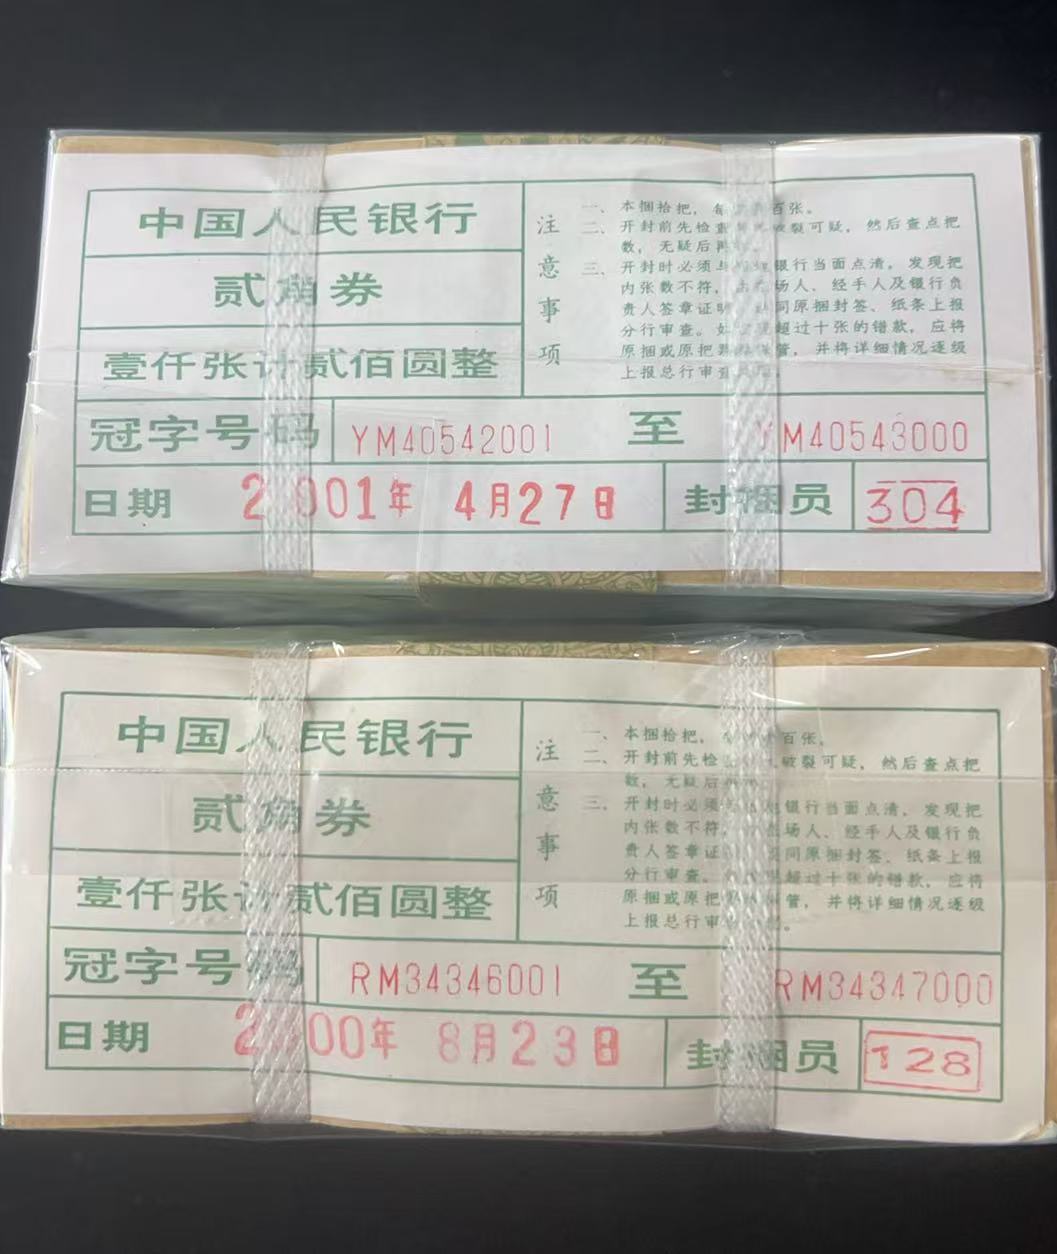 中国人民银行
贰角券
壹仟张计贰佰圆整
注意事项
一、本捆拾把，每百张。
二、开封前先检查破裂可疑，然后查点把
数，无疑后再
三、开封时必须与银行当面点清，发现把
内张数不符，场人、经手人及银行负
责人签章证明同原捆封签、纸条上报
分行审查。如超过十张的错款，应将
原捆或原把管，并将详细情况逐级
上报总行审查
冠字号码 YM40542001 至 YM40543000
日期 2001年 4月27日 封捆员 304
中国人民银行
贰角券
壹仟张计贰佰圆整
注意事项
一、本捆拾把，百张。
二、开封前先检破裂可疑，然后查点把
数，无疑后
三、开封时必须银行当面点清，发现把
内张数不符，场人、经手人及银行负
责人签章证同原捆封签、纸条上报
分行审查。超过十张的错款，应将
原捆或原把管，并将详细情况逐级
上报总行审
冠字号码 RM34346001 至 RM34347000
日期 2000年 8月23日 封捆员 128